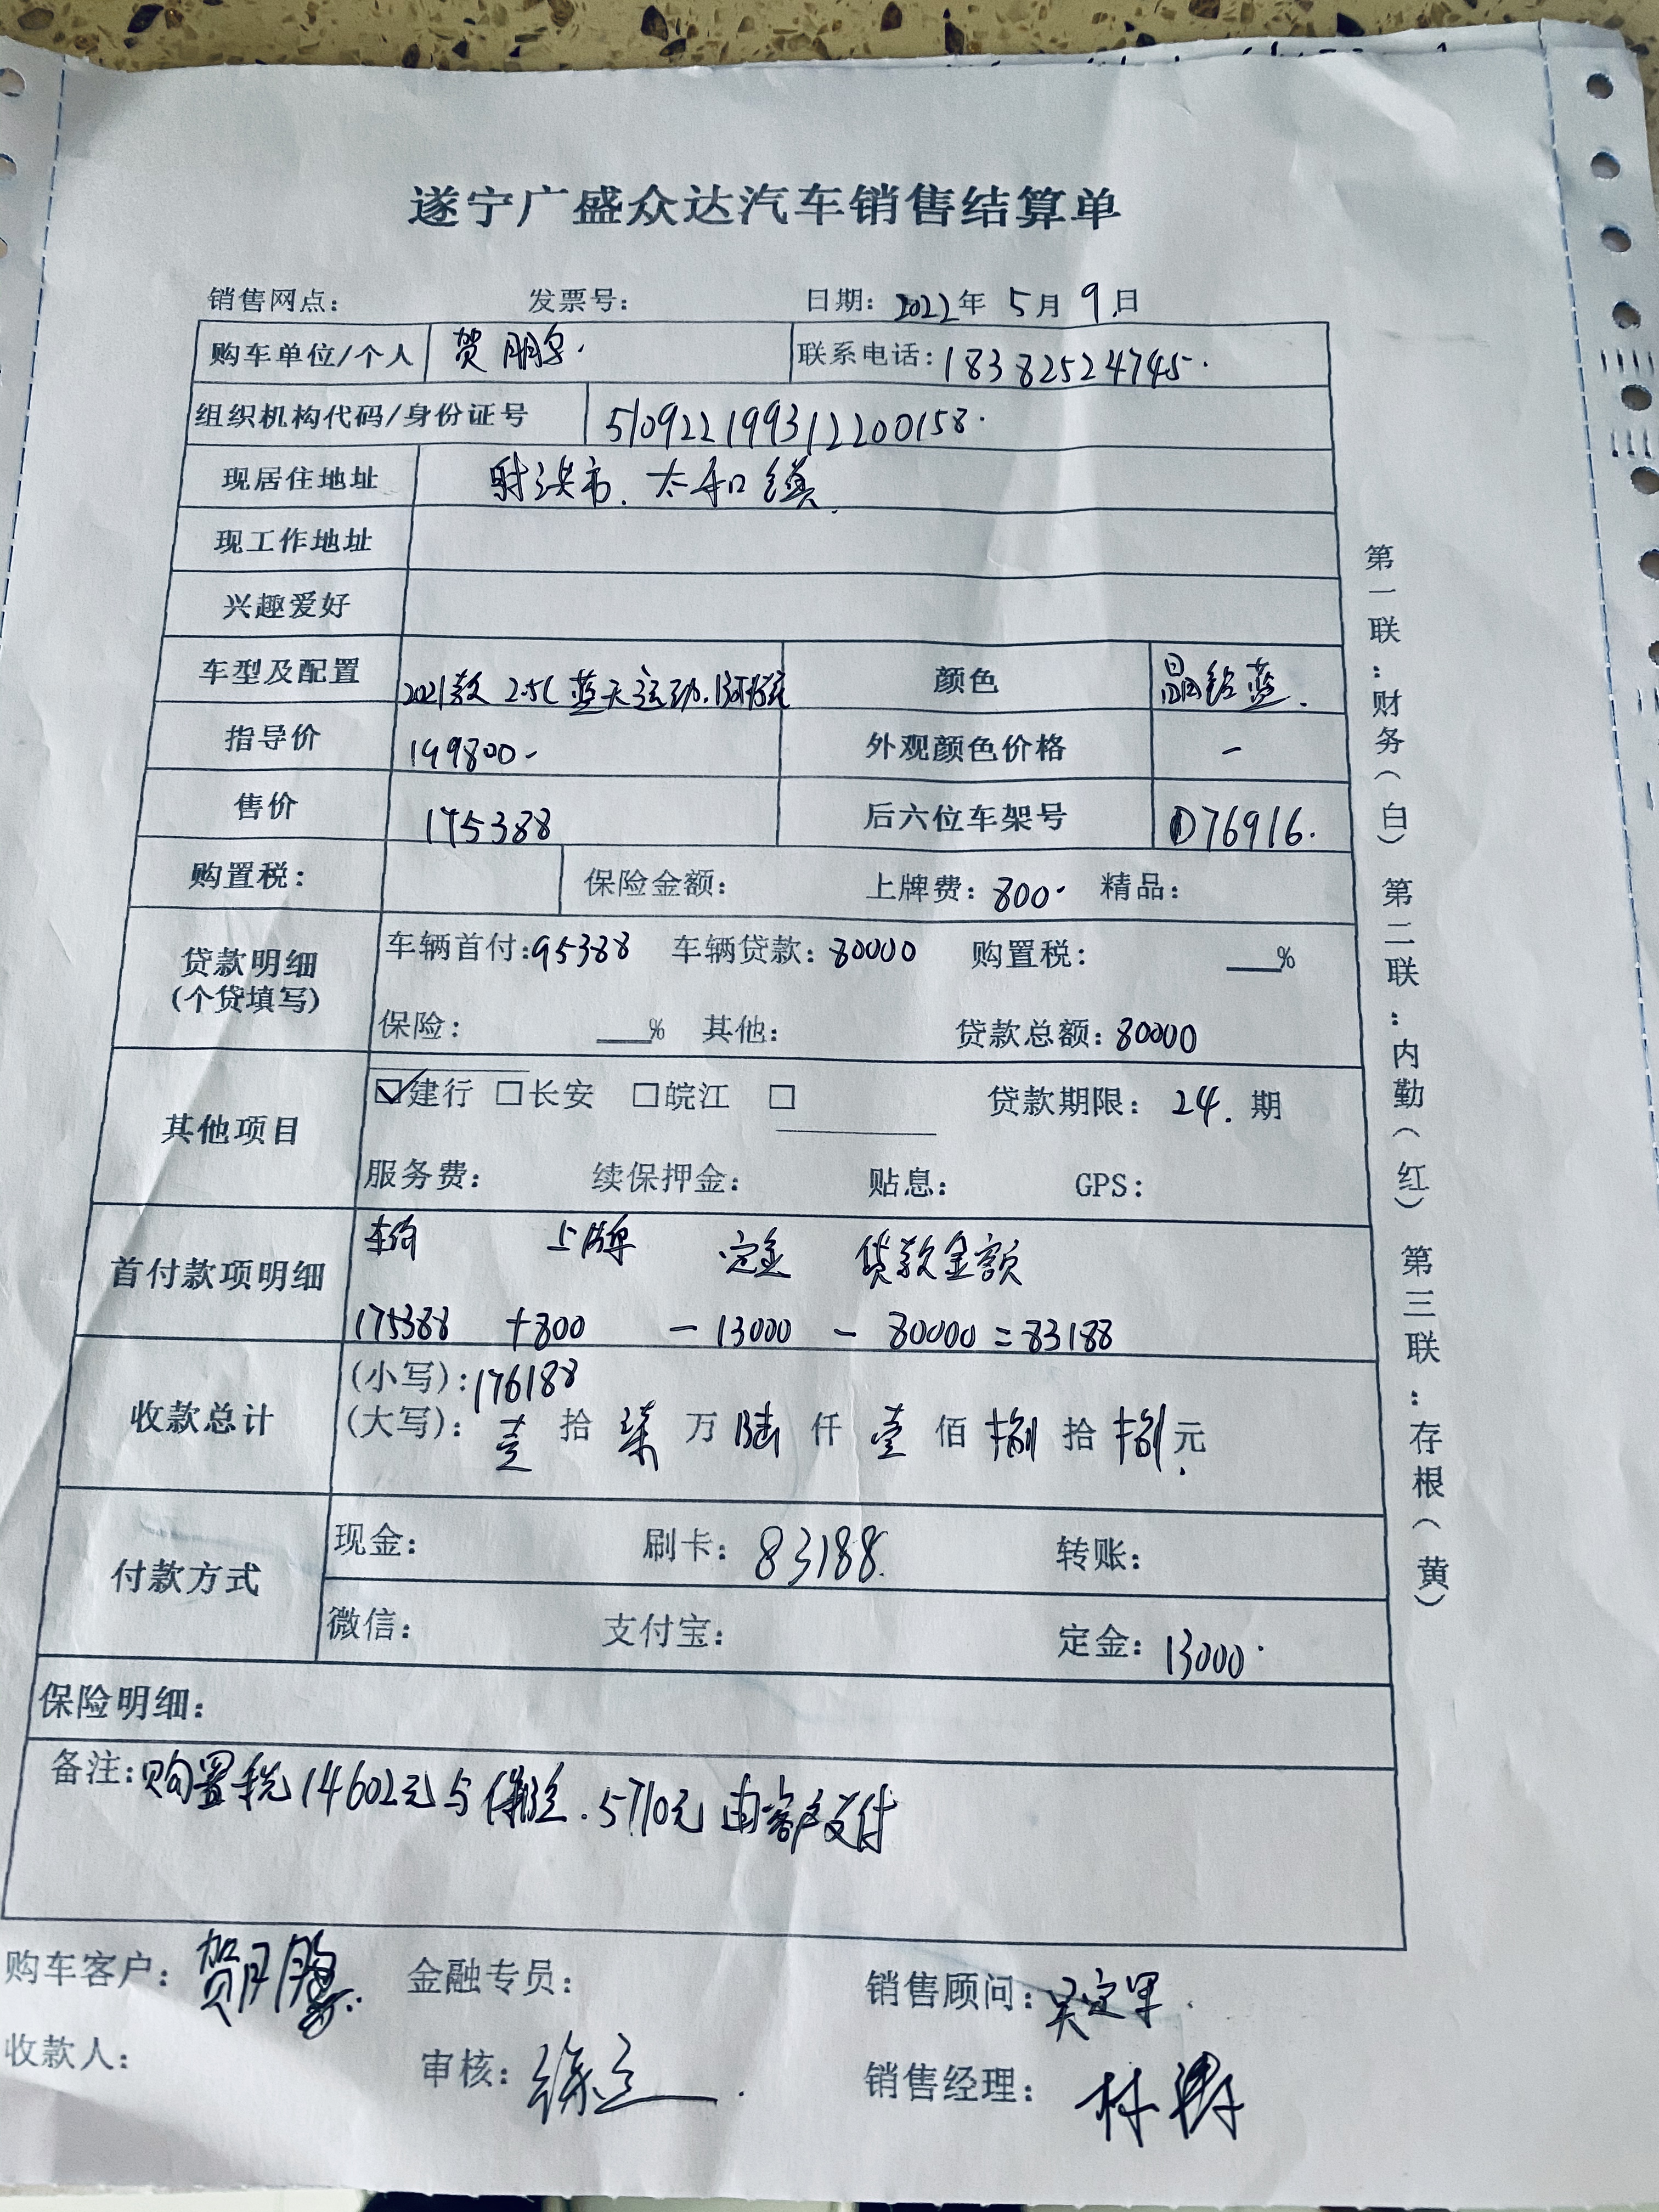 遂宁广盛众达汽车销售结算单
销售网点： 发票号： 日期：2022年 5月 9日
购车单位/个人 贺 联系电话：18382524745.
组织机构代码/身份证号 510922199312200158.
现居住地址 射洪市. 太和镇.
现工作地址
兴趣爱好
车型及配置 2021款 2.5L 蓝天运动. 颜色 晶钻蓝.
指导价 199800- 外观颜色价格 —
售价 175388 后六位车架号 D76916.
购置税： 保险金额： 上牌费：800. 精品：
贷款明细 (个贷填写) 车辆首付：95388 车辆贷款：80000 购置税： ___%
保险： ___% 其他： 贷款总额：80000
其他项目 ☑建行 □长安 □皖江 □ 贷款期限：24. 期
服务费： 续保押金： 贴息： GPS：
首付款项明细 车价 上牌 定金 贷款金额
175388 +800 - 13000 - 80000 = 83188
收款总计 (小写)：176188
(大写)：壹 拾 柒 万 陆 仟 壹 佰 捌 拾 捌 元.
付款方式 现金： 刷卡：83188. 转账：
微信： 支付宝： 定金：13000.
保险明细：
备注：购置税14602元与保险.5710元由客户支付
购车客户：贺 金融专员： 销售顾问：吴定军.
收款人： 审核：徐 销售经理：林
第一联：财务（白） 第二联：内勤（红） 第三联：存根（黄）